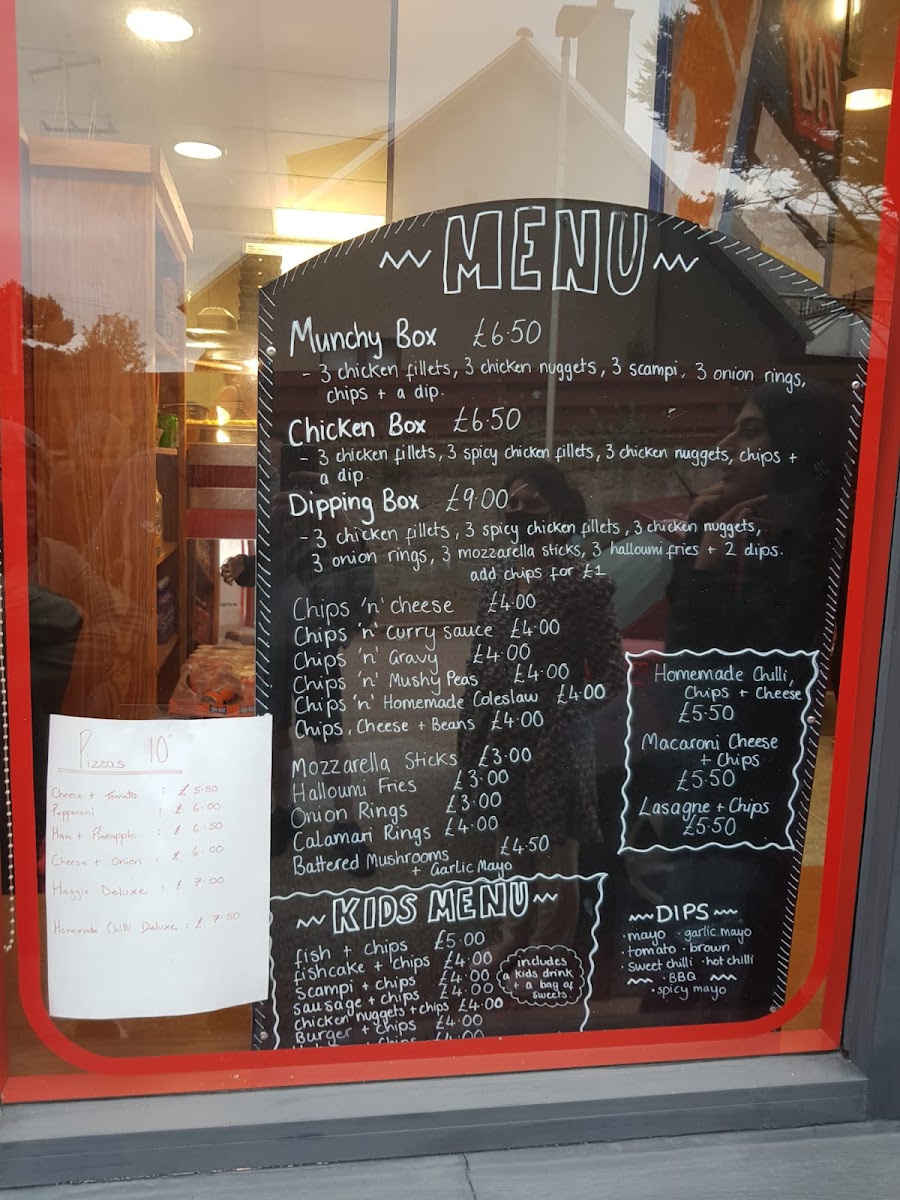 BAR
MENU
Munchy Box £6.50
- 3 chicken fillets, 3 chicken nuggets, 3 scampi, 3 onion rings,
chips + a dip.
Chicken Box £6.50
- 3 chicken fillets, 3 spicy chicken fillets, 3 chicken nuggets, chips +
a dip.
Dipping Box £9.00
- 3 chicken fillets, 3 spicy chicken fillets, 3 chicken nuggets,
3 onion rings, 3 mozzarella sticks, 3 halloumi fries + 2 dips.
add chips for £1
Chips 'n' cheese £4.00
Chips 'n' curry sauce £4.00
Chips 'n' Gravy £4.00
Chips 'n' Mushy Peas £4.00
Chips 'n' Homemade Coleslaw £4.00
Chips, Cheese + Beans £4.00
Mozzarella Sticks £3.00
Halloumi Fries £3.00
Onion Rings £3.00
Calamari Rings £4.00
Battered Mushrooms £4.50
+ Garlic Mayo
Homemade Chilli,
Chips + Cheese
£5.50
Macaroni Cheese
+ Chips
£5.50
Lasagne + Chips
£5.50
KIDS MENU
fish + chips £5.00
fishcake + chips £4.00
Scampi + chips £4.00
Sausage + chips £4.00
chicken nuggets + chips £4.00
Burger + chips £4.00
includes
a kids drink
+ a bag of
sweets.
DIPS
· mayo · garlic mayo
· tomato · brown
· sweet chilli · hot chilli
· BBQ
· spicy mayo
Pizzas 10"
Cheese + Tomato : £5.50
Pepperoni : £ 6.00
Ham + Pineapple : £ 6.50
Cheese + Onion : £ 6.00
Haggis Deluxe : £ 7.00
Homemade Chilli Deluxe : £ 7.50